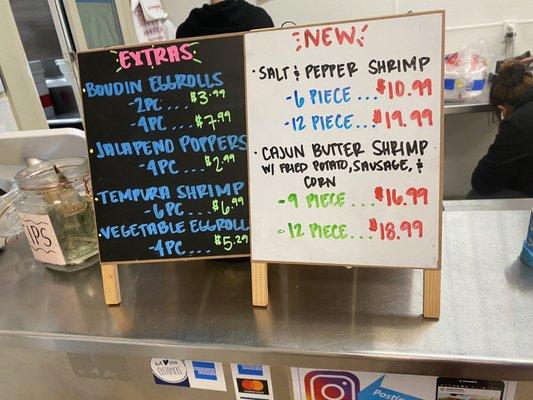 EXTRAS
BOUDIN EGGROLLS
-2PC .... $3.99
-4PC ... $7.99
JALAPENO POPPERS
-4PC ... $2.99
TEMPURA SHRIMP
-6PC ... $6.99
VEGETABLE EGGROLL
-4PC ... $5.29
NEW
·SALT & PEPPER SHRIMP
-6 PIECE ... $10.99
-12 PIECE ... $19.99
·CAJUN BUTTER SHRIMP
W/ FRIED POTATO, SAUSAGE, &
CORN
-9 PIECE .... $16.99
-12 PIECE .... $18.99
TIPS
CUSTOMERS
Postin